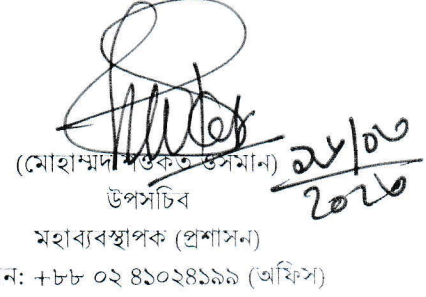 (মোহাম্মদ শওকত ওসমান)
উপসচিব
মহাব্যবস্থাপক (প্রশাসন)
ন: +৮৮ ০২ ৪১০২৪১৯৯ (অফিস)